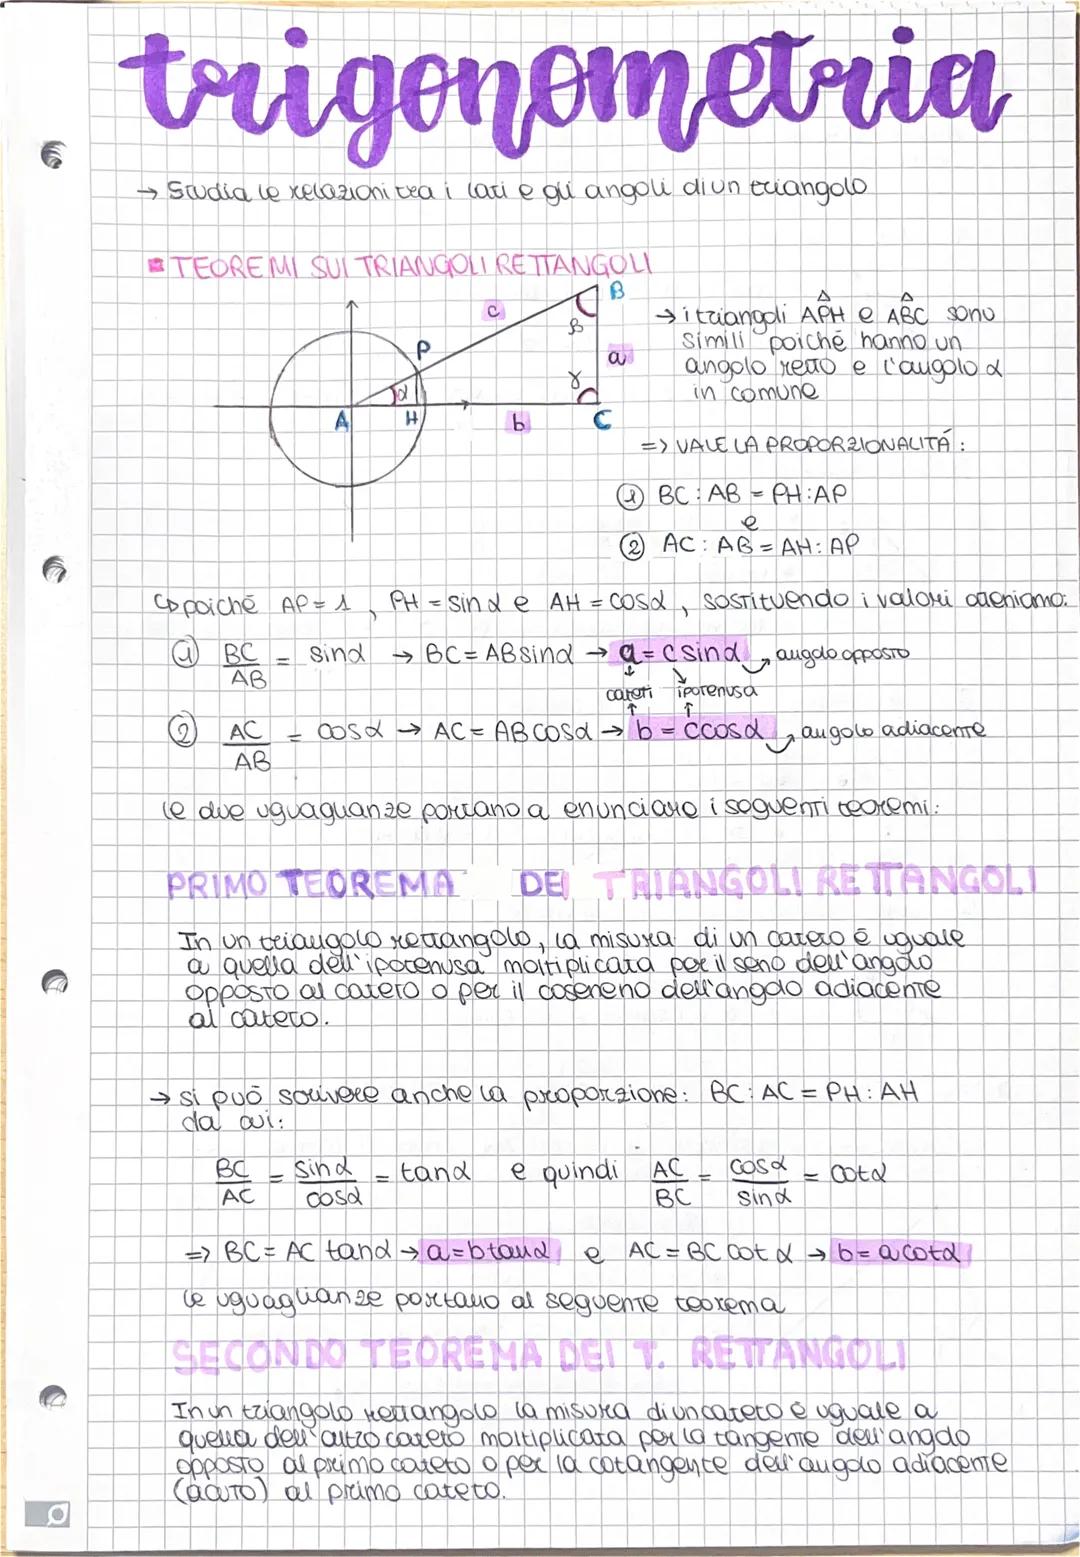 trigonometria
→ Studia le relazioni tra i lati e gli angoli di un triangolo
TEOREMI SUI TRIANGOLI RETTANGOLI
B
c
β
P
a
α
γ
A
H
b
C
→ i triangoli APH e ABC sono
simili poiché hanno un
angolo retto e l'angolo α
in comune
=> VALE LA PROPORZIONALITÁ:
① BC : AB = PH : AP
e
② AC : AB = AH : AP
↳ poiché AP = 1, PH = sin α e AH = cosα, sostituendo i valori otteniamo:
① BC/AB = sinα → BC = AB sinα → a = c sinα → angolo opposto
cateti ipotenusa
② AC/AB = cosα → AC = AB cosα → b = c cosα → angolo adiacente
le due uguaglianze portano a enunciare i seguenti teoremi:
PRIMO TEOREMA DEI TRIANGOLI RETTANGOLI
In un triangolo rettangolo, la misura di un cateto è uguale
a quella dell'ipotenusa moltiplicata per il seno dell'angolo
opposto al cateto o per il coseneno dell'angolo adiacente
al cateto.
→ si può scrivere anche la proporzione: BC : AC = PH : AH
da cui:
BC/AC = sinα/cosα = tanα e quindi AC/BC = cosα/sinα = cotα
=> BC = AC tanα → a = b tanα e AC = BC cot α → b = a cotα
le uguaglianze portano al seguente teorema
SECONDO TEOREMA DEI T. RETTANGOLI
In un triangolo rettangolo la misura di un cateto è uguale a
quella dell'altro cateto moltiplicata per la tangente dell'angolo
opposto al primo cateto o per la cotangente dell'angolo adiacente
(acuto) al primo cateto.